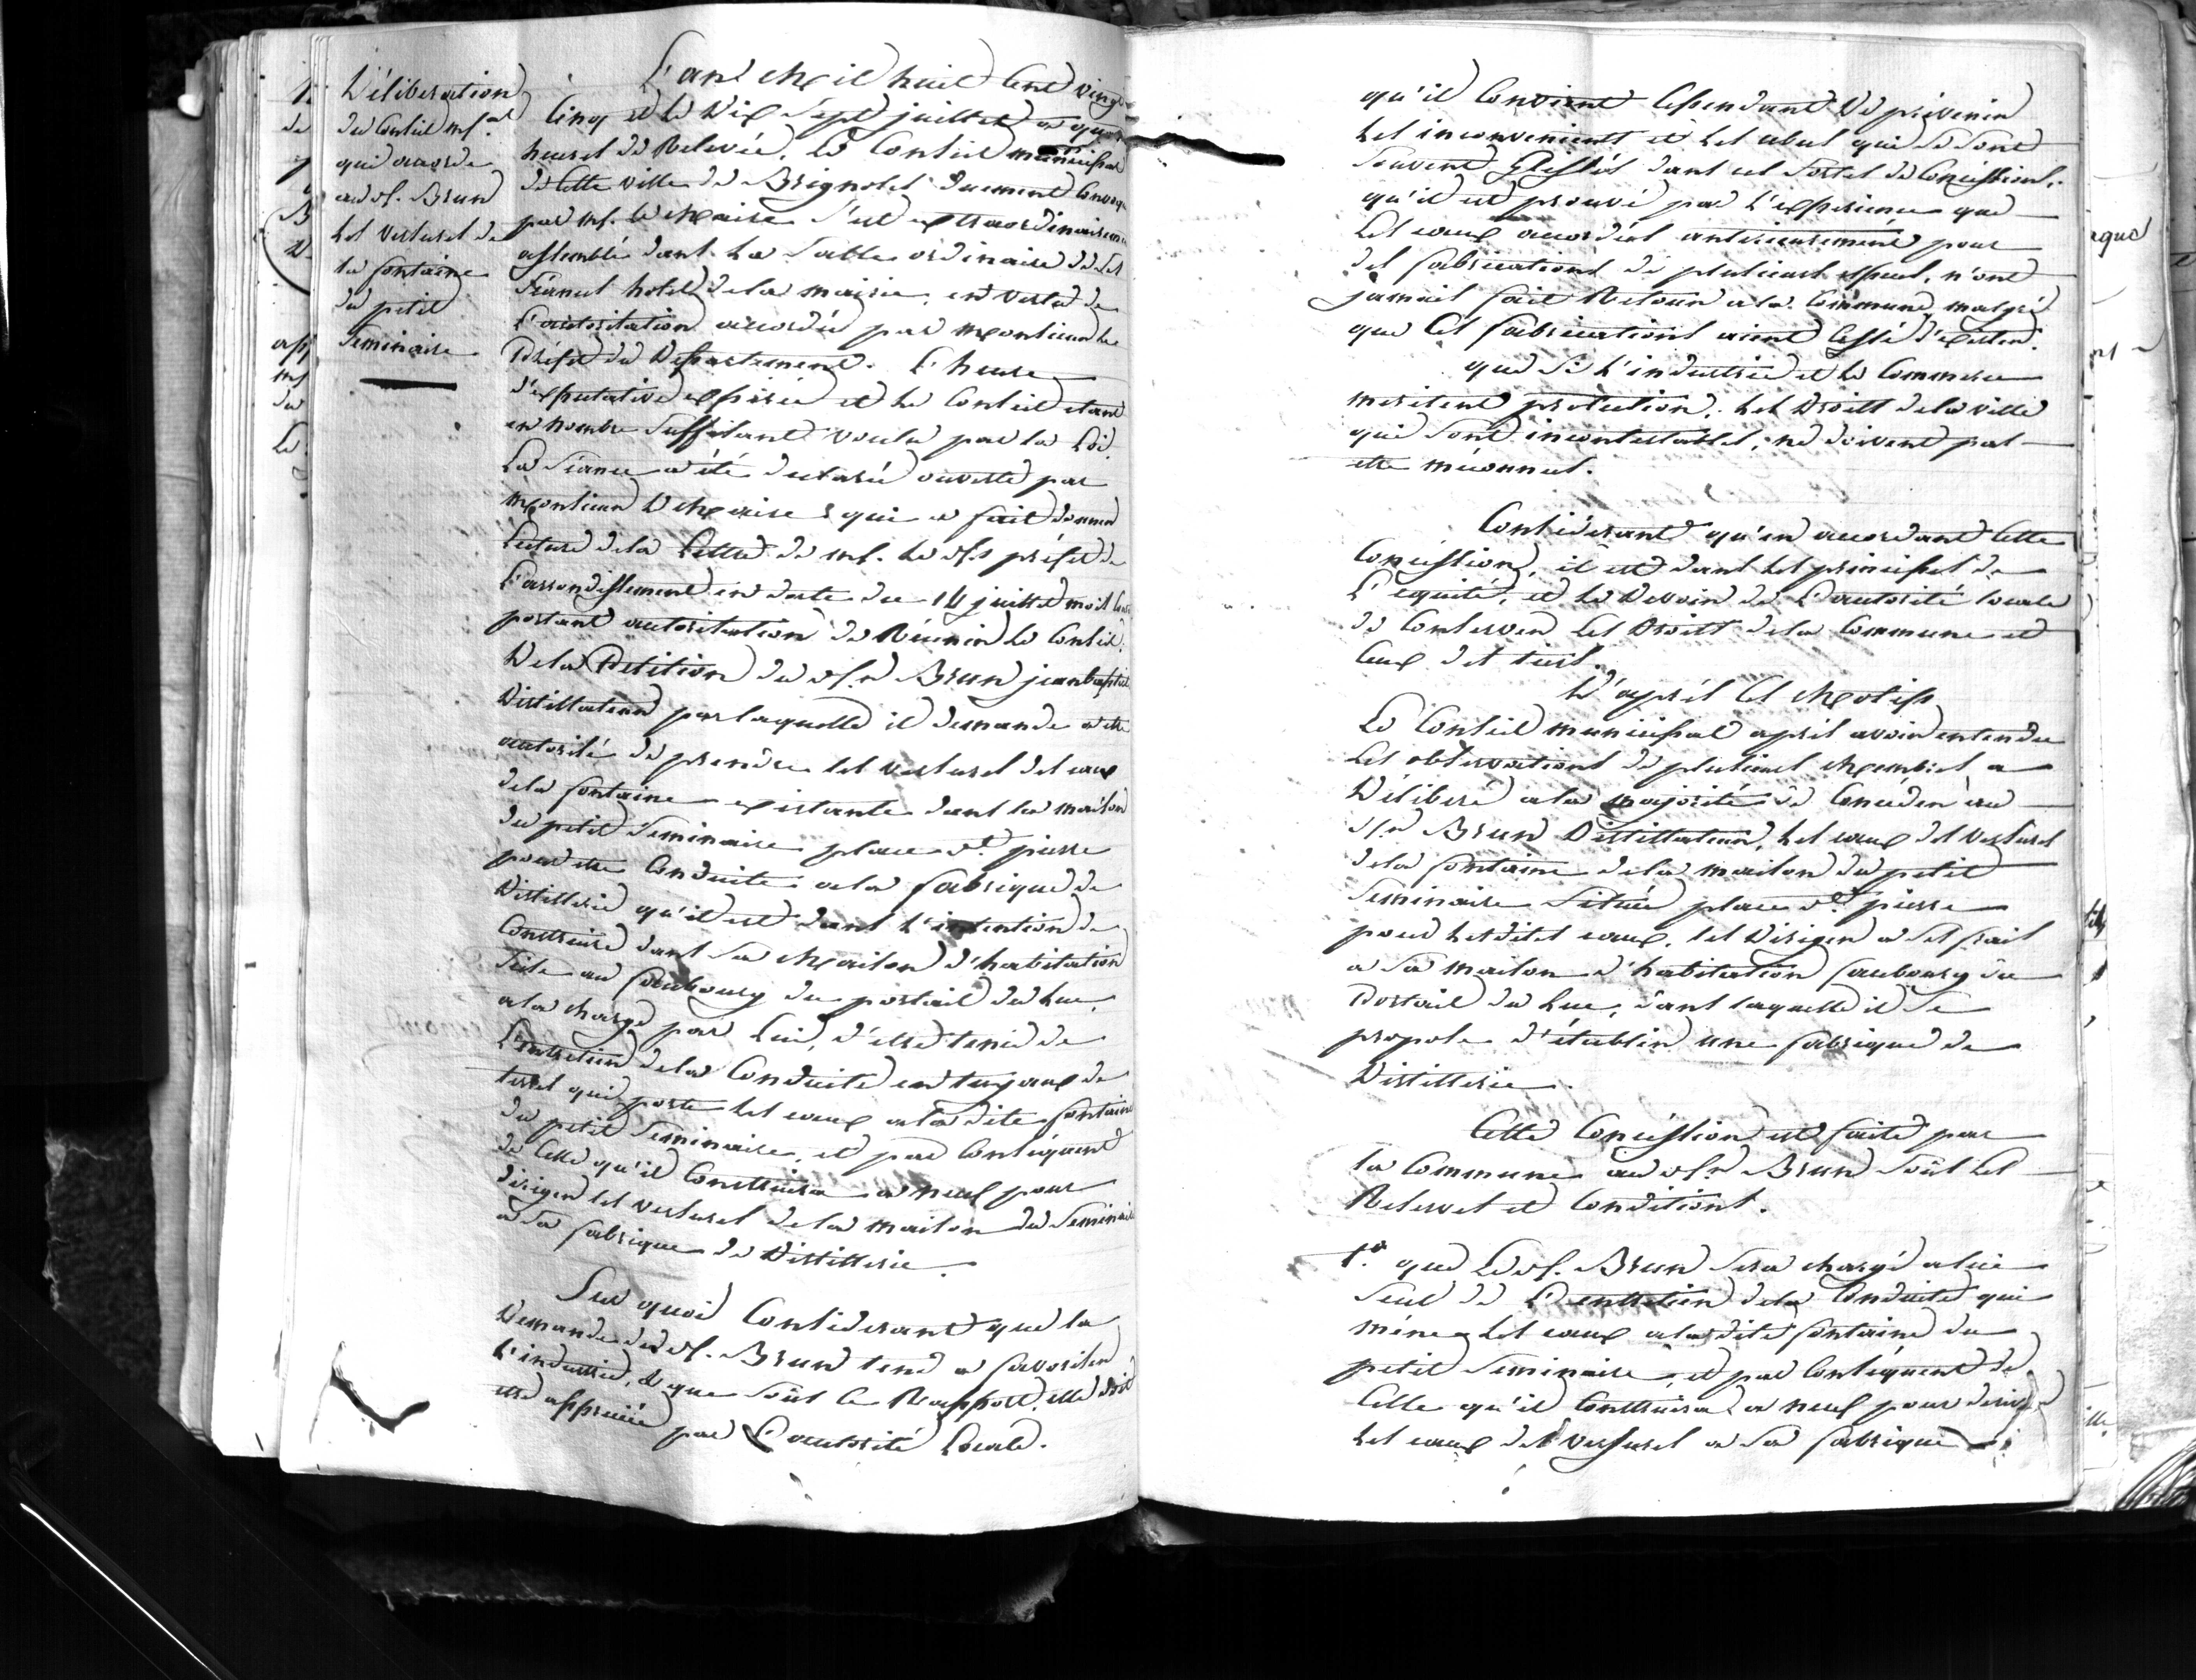 Déliberation
du Conseil mpal
qui accorde
au sr. Brun
les versures de
la fontaine
du petit
Seminaire
L'an Mil huit Cent vingt
Cinq et le Dix Sept juillet a quatre
heures de Relevée, Le Conseil municipal
de Cette ville de Brignoles duement Convoqué
par mr. le Maire s'est extraordinairement
assemblé dans La Salle ordinaire de ses
Séances hotel de la mairie, en vertu de
L'autorisation accordée par Monsieur le
Préfet du Département. L'heure
d'expectative expirée et Le Conseil etant
en nombre Suffisant voulu par la Loi.
La Séance a été declarée ouverte par
Monsieur Le Maire qui a fait donner
Lecture de la Lettre de mr. Le Ss préfet de
L'arrondissement en date du 14 juillet mois
portant autorisation de Réunir Le Conseil.
De la Petition du Sr Brun jeanbaptiste
Distillateur par laquelle il demande a etre
autorisé de prendre les versures des eaux
de la fontaine existante dans la maison
du petit Seminaire place St. pierre
pour etre Conduites a la fabrique de
Distillerie qu'il est dans l'intention de
Construire dans Sa Maison d'habitation
Sise au faubourg du portail du Luc,
a la charge par Lui, d'etre tenu de
L'entretien de la Conduite en tuyaux de
terre qui porte les eaux a la dite fontaine
du petit Seminaire, et par Conséquent
de Celle qu'il Construira a neuf pour
diriger les versures de la maison du Seminaire
a Sa fabrique de Distillerie.
Sur quoi Considerant que la
Demande du Sr. Brun tend a favoriser
L'industrie, & que Sous Ce Rapport, elle doit
etre appreciée par L'autorité Locale.
qu'il Convient Cependant de prévenir
les inconvenients et les abus qui se sont
Souvent Glissés dans ces Sortes de Concessions.
qu'il est prouvé par l'experience que
Les eaux accordées anterieurement pour
des fabrications de plusieurs especes, n'ont
jamais fait Retour a la Commune, malgré
que Ces fabrications aient Cessé d'exister.
que Si l'industrie et le Commerce
meritent protection, les Droits de la ville
qui Sont incontestables, ne doivent pas
etre méconnus.
Considerant qu'en accordant Cette
Concession, il est dans les principes de
L'equité, et le Devoir de L'autorité locale
de Conserver Les Droits de la Commune et
Ceux des tiers.
D'après Ces Motifs
Le Conseil municipal après avoir entendu
Les observations de plusieurs Membres a
Déliberé a la majorité de Concéder au
Sr Brun Distillateur, les eaux des versures
de la fontaine de la maison du petit
Seminaire Située place St pierre
pour lesdites eaux, les Diriger a Ses frais
a Sa maison d'habitation faubourg du
Portail du Luc, dans laquelle il Se
propose d'établir une fabrique de
Distillerie.
Cette Concession est faite par
la Commune au Sr Brun Sous Les
Reserves et Conditions.
1.° que Le Sr. Brun Sera chargé a lui
Seul de L'entretien de la Conduite qui
méne les eaux a la dite fontaine du
petit Seminaire, et par Conséquent de
Celle qu'il Construira a neuf pour diriger
les eaux des versures a Sa fabrique